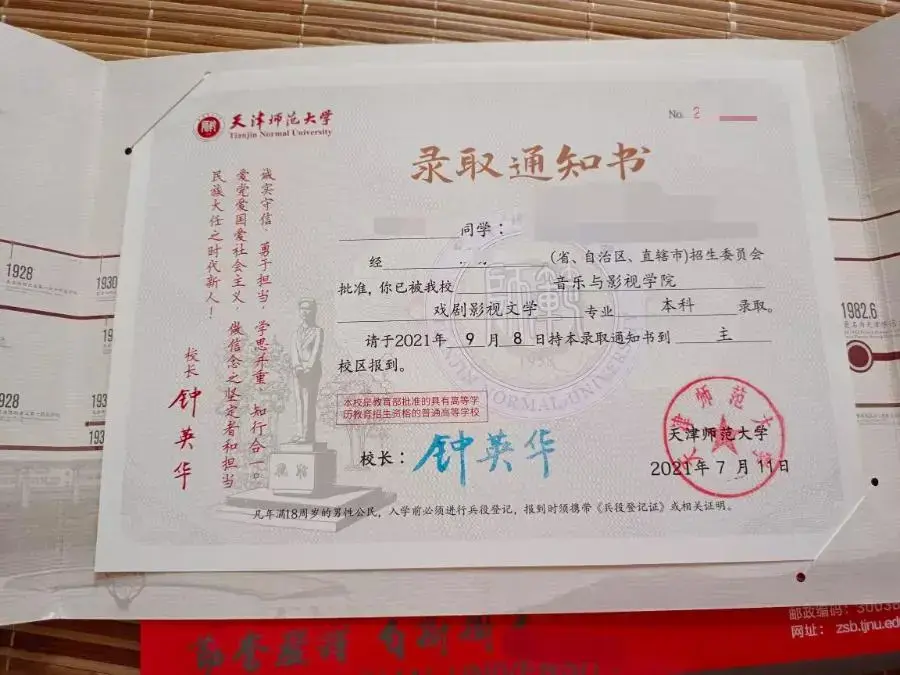 天津师范大学
Tianjin Normal University
No. 2
录取通知书
同学：
经
(省、自治区、直辖市)招生委员会
批准，你已被我校 音乐与影视学院
戏剧影视文学 专业 本科 录取。
请于2021年 9 月 8 日持本录取通知书到 主
校区报到。
本校是教育部批准的具有高等学
历教育招生资格的普通高等学校
校长：钟英华
天津师范大学
2021年 7 月 11日
凡年满18周岁的男性公民，入学前必须进行兵役登记，报到时须携带《兵役登记证》或相关证明。
诚实守信、勇于担当，学思并重、知行合一。
爱党爱国爱社会主义，做信念之坚定者和担当
民族大任之时代新人！
校长 钟英华
1928
1930
1929
193
1982.6
邮政编码：30038
网址： zsb.tjnu.edu